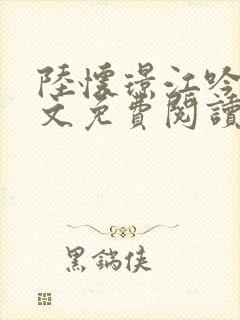 陸懷璟江吟
文免費閱讀
黑鍋俠